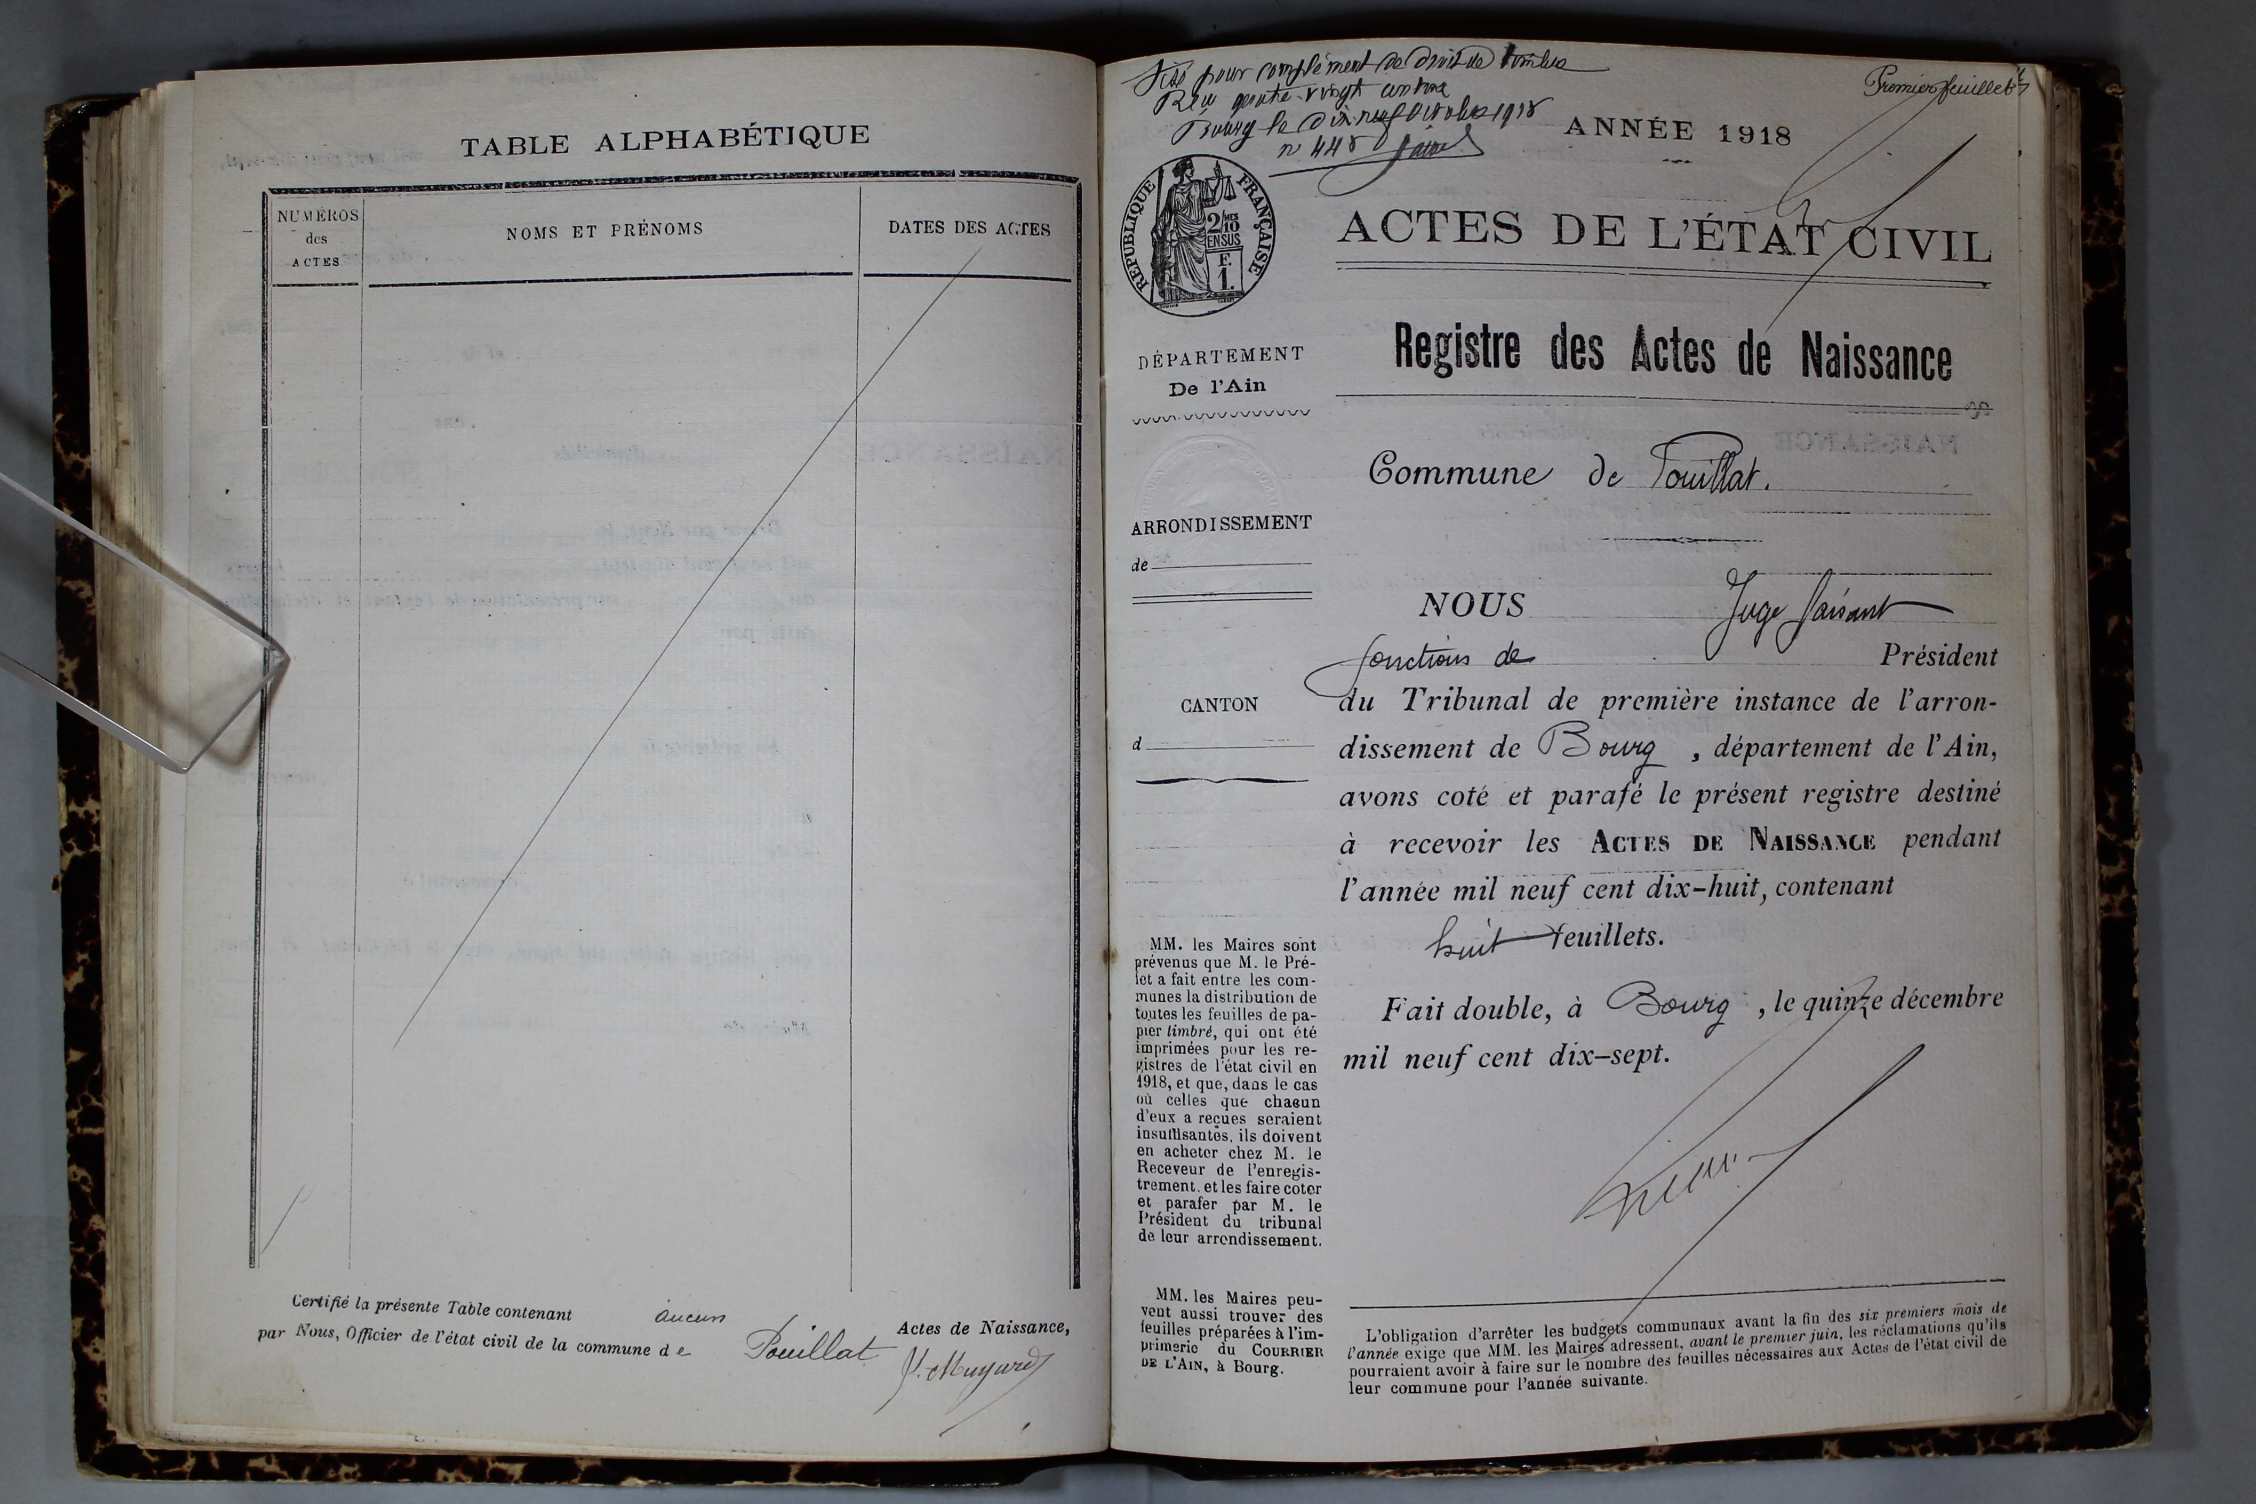 TABLE ALPHABÉTIQUE
NUMÉROS
des
ACTES
NOMS ET PRÉNOMS
DATES DES ACTES
Certifié la présente Table contenant aucun Actes de Naissance,
par Nous, Officier de l'état civil de la commune de Pouillat
Visé pour complément de droit de timbre
Reçu quatre vingt
Bourg le dix neuf Octobre 1918
n° 448
Premier feuillet
ANNÉE 1918
RÉPUBLIQUE FRANÇAISE
2/10
EN SUS
F.
1.
ACTES DE L'ÉTAT CIVIL
Registre des Actes de Naissance
DÉPARTEMENT
De l'Ain
Commune de Pouillat.
ARRONDISSEMENT
de
CANTON
d
NOUS Juge faisant
fonctions de Président
du Tribunal de première instance de l'arron-
dissement de Bourg, département de l'Ain,
avons coté et parafé le présent registre destiné
à recevoir les ACTES DE NAISSANCE pendant
l'année mil neuf cent dix-huit, contenant
huit feuillets.
Fait double, à Bourg, le quinze décembre
mil neuf cent dix-sept.
MM. les Maires sont
prévenus que M. le Pré-
fet a fait entre les com-
munes la distribution de
toutes les feuilles de pa-
pier timbré, qui ont été
imprimées pour les re-
gistres de l'état civil en
1918, et que, dans le cas
où celles que chacun
d'eux a reçues seraient
insuffisantes, ils doivent
en acheter chez M. le
Receveur de l'enregis-
trement, et les faire coter
et parafer par M. le
Président du tribunal
de leur arrondissement.
MM. les Maires peu-
vent aussi trouver des
feuilles préparées à l'im-
primerie du COURRIER
DE L'AIN, à Bourg.
L'obligation d'arrêter les budgets communaux avant la fin des six premiers mois de
l'année exige que MM. les Maires adressent, avant le premier juin, les réclamations qu'ils
pourraient avoir à faire sur le nombre des feuilles nécessaires aux Actes de l'état civil de
leur commune pour l'année suivante.